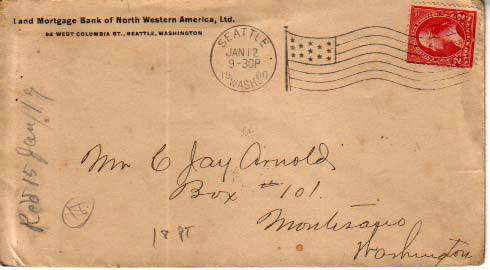 Land Mortgage Bank of North Western America, Ltd.
64 WEST COLUMBIA ST., SEATTLE, WASHINGTON
SEATTLE
JAN 12
9-30P
WASH.
Mr C Jay Arnold
Box #101.
Montesano
Washington
18
Rec'd 15 Jany